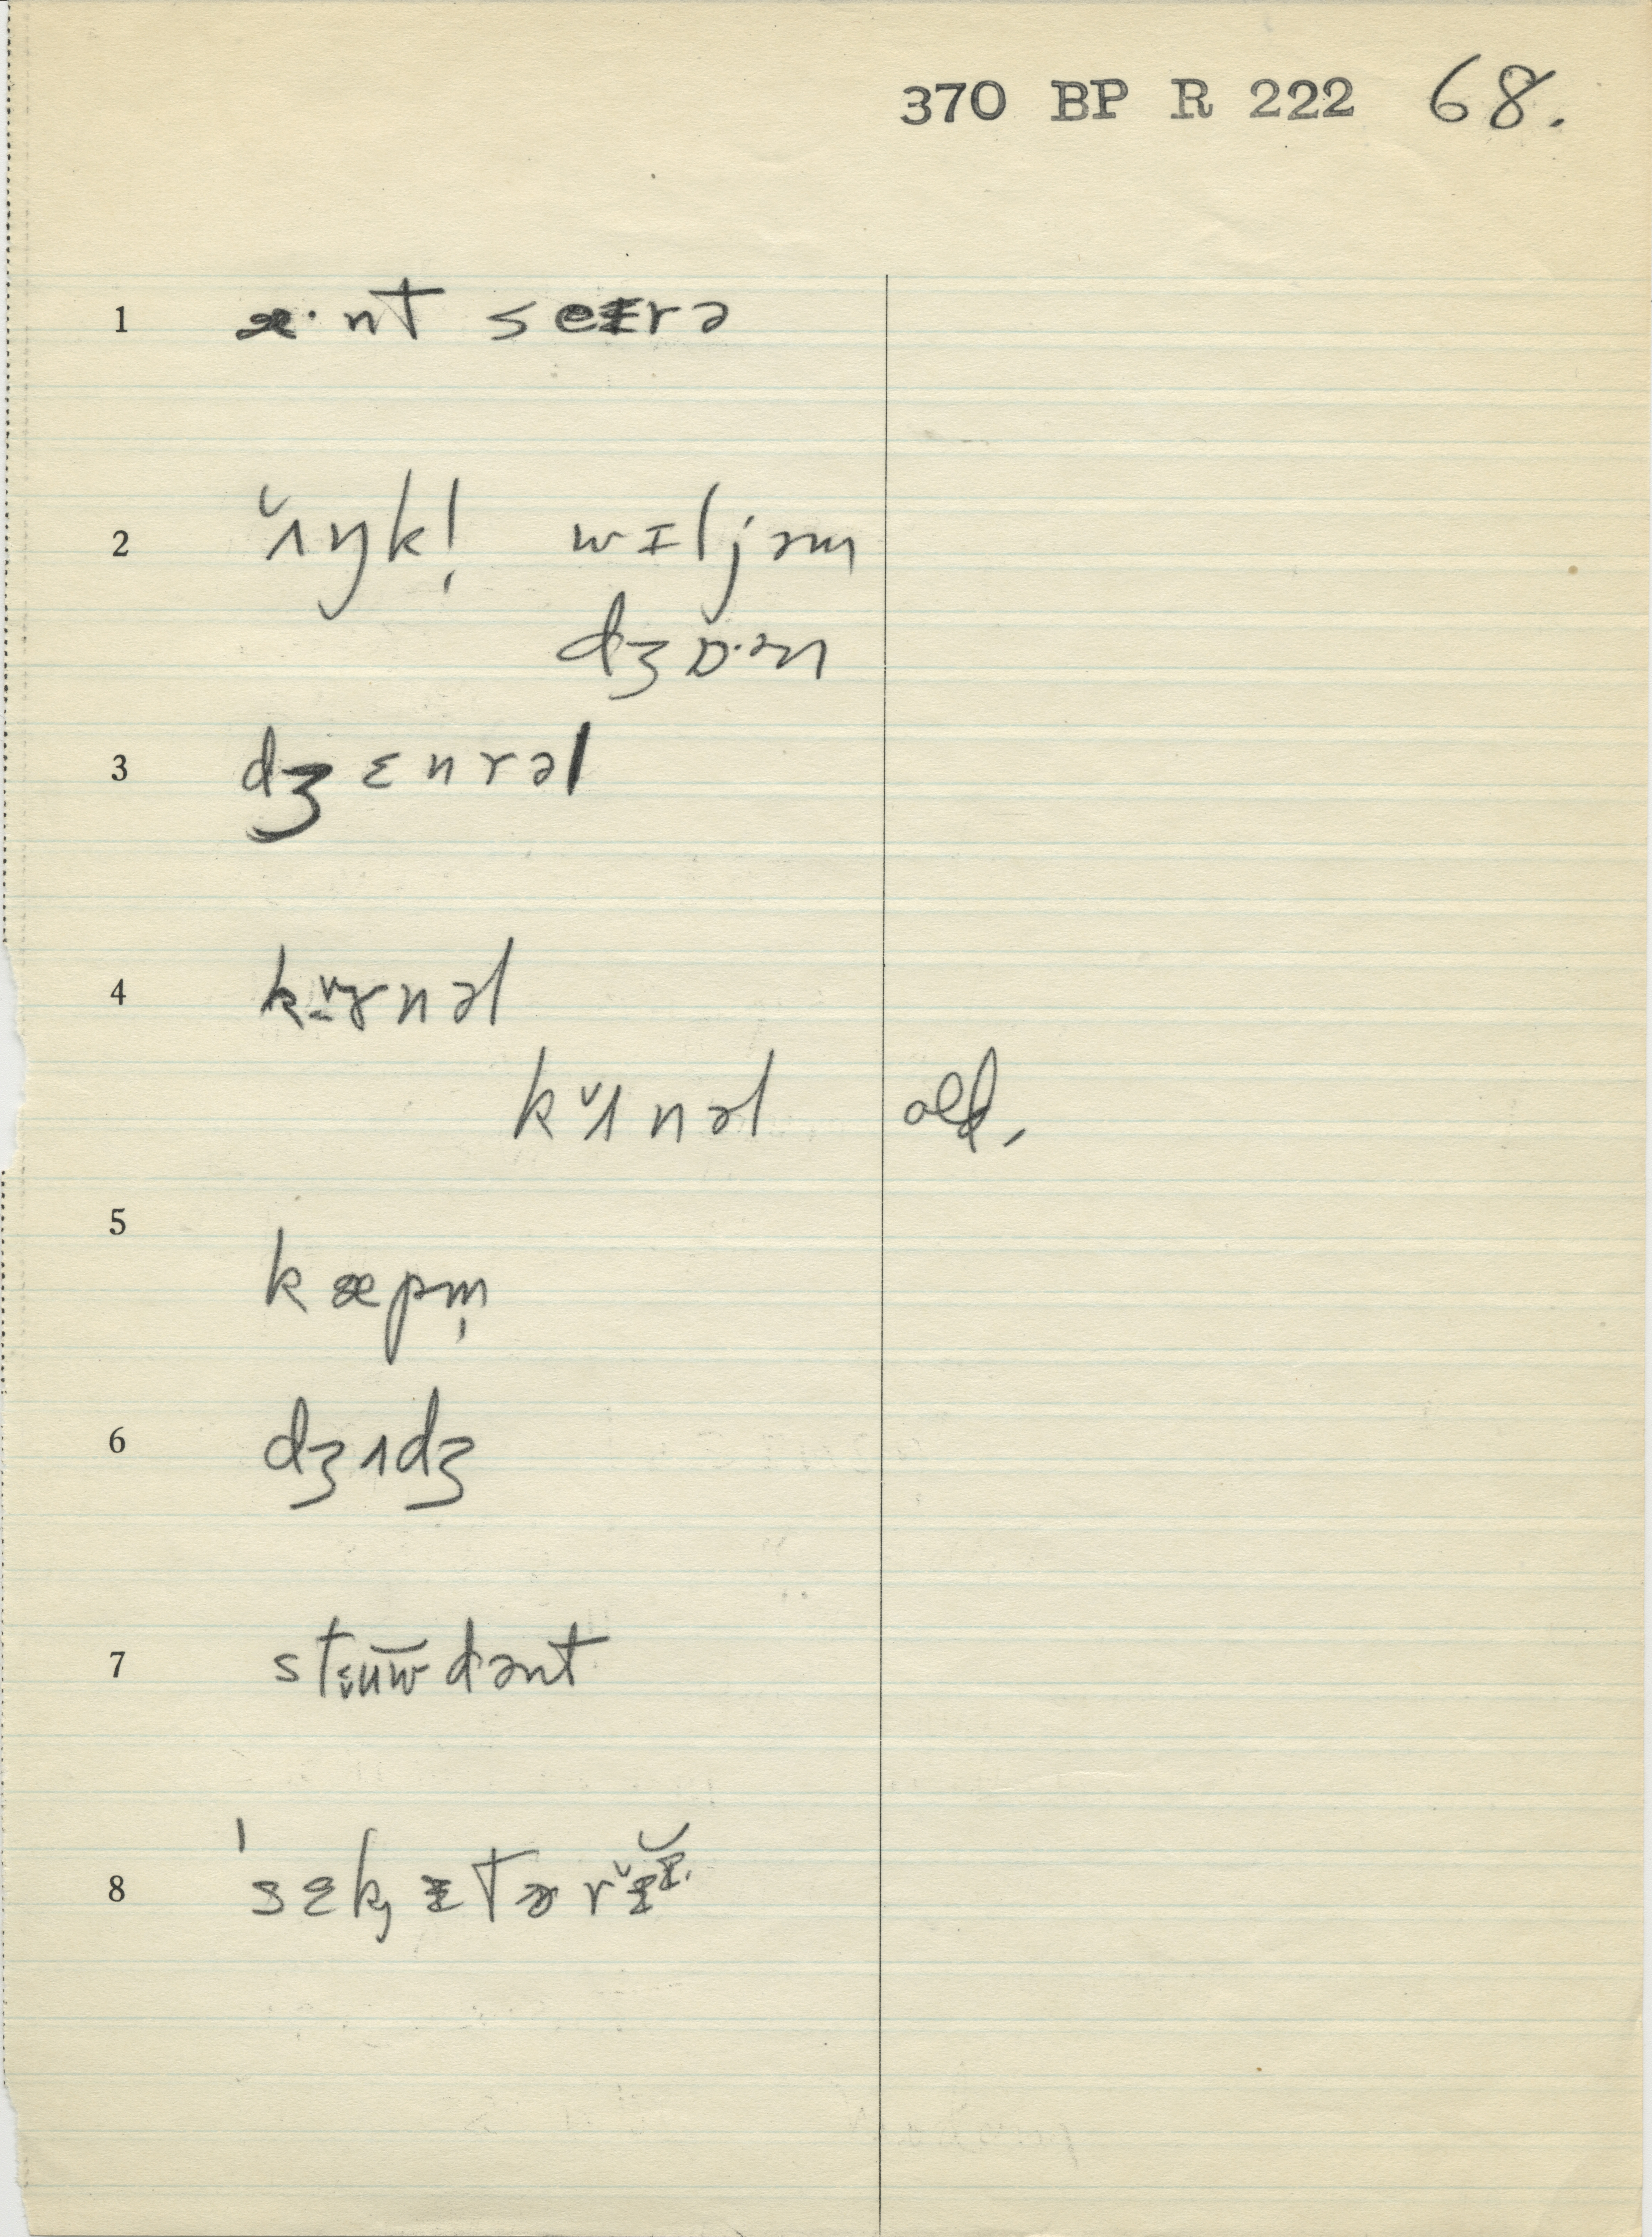 370 BP R 222 68.
1 æ·nt seɪrə
2 ʌ̌ŋkl̩ wɪljəm
dʒɒ·ən
3 dʒɛnrəl
4 kɝnəl
kʌ̌nəl old.
5 kæpm̩
6 dʒʌdʒ
7 stɪ̬ʉw̄dənt
8 ˈsɛk̟ɪtərɪ̌ɪ̆